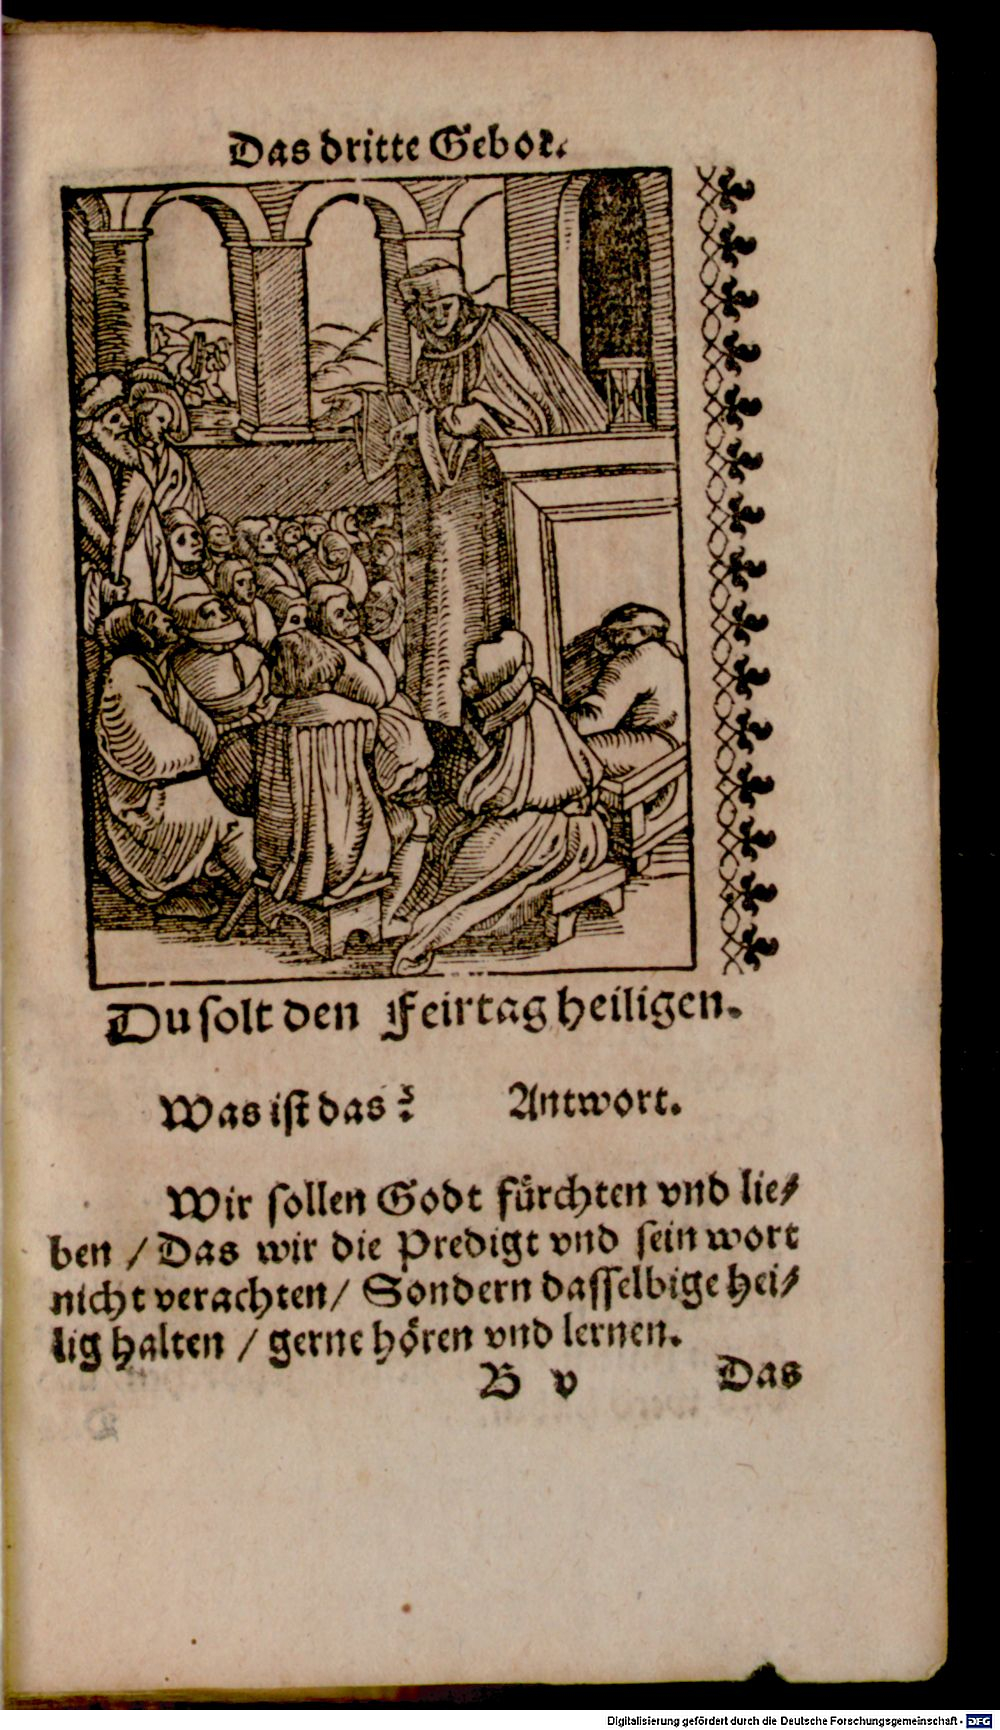 Das dritte Gebot.
Du ſolt den Feirtag heiligen.
Was iſt das? Antwort.
Wir ſollen Godt fuͤrchten vnd lie-
ben / Das wir die Predigt vnd ſein wort
nicht verachten / Sondern daſſelbige hei-
lig halten / gerne hoͤren vnd lernen.
B v Das
Digitalisierung gefördert durch die Deutsche Forschungsgemeinschaft - DFG